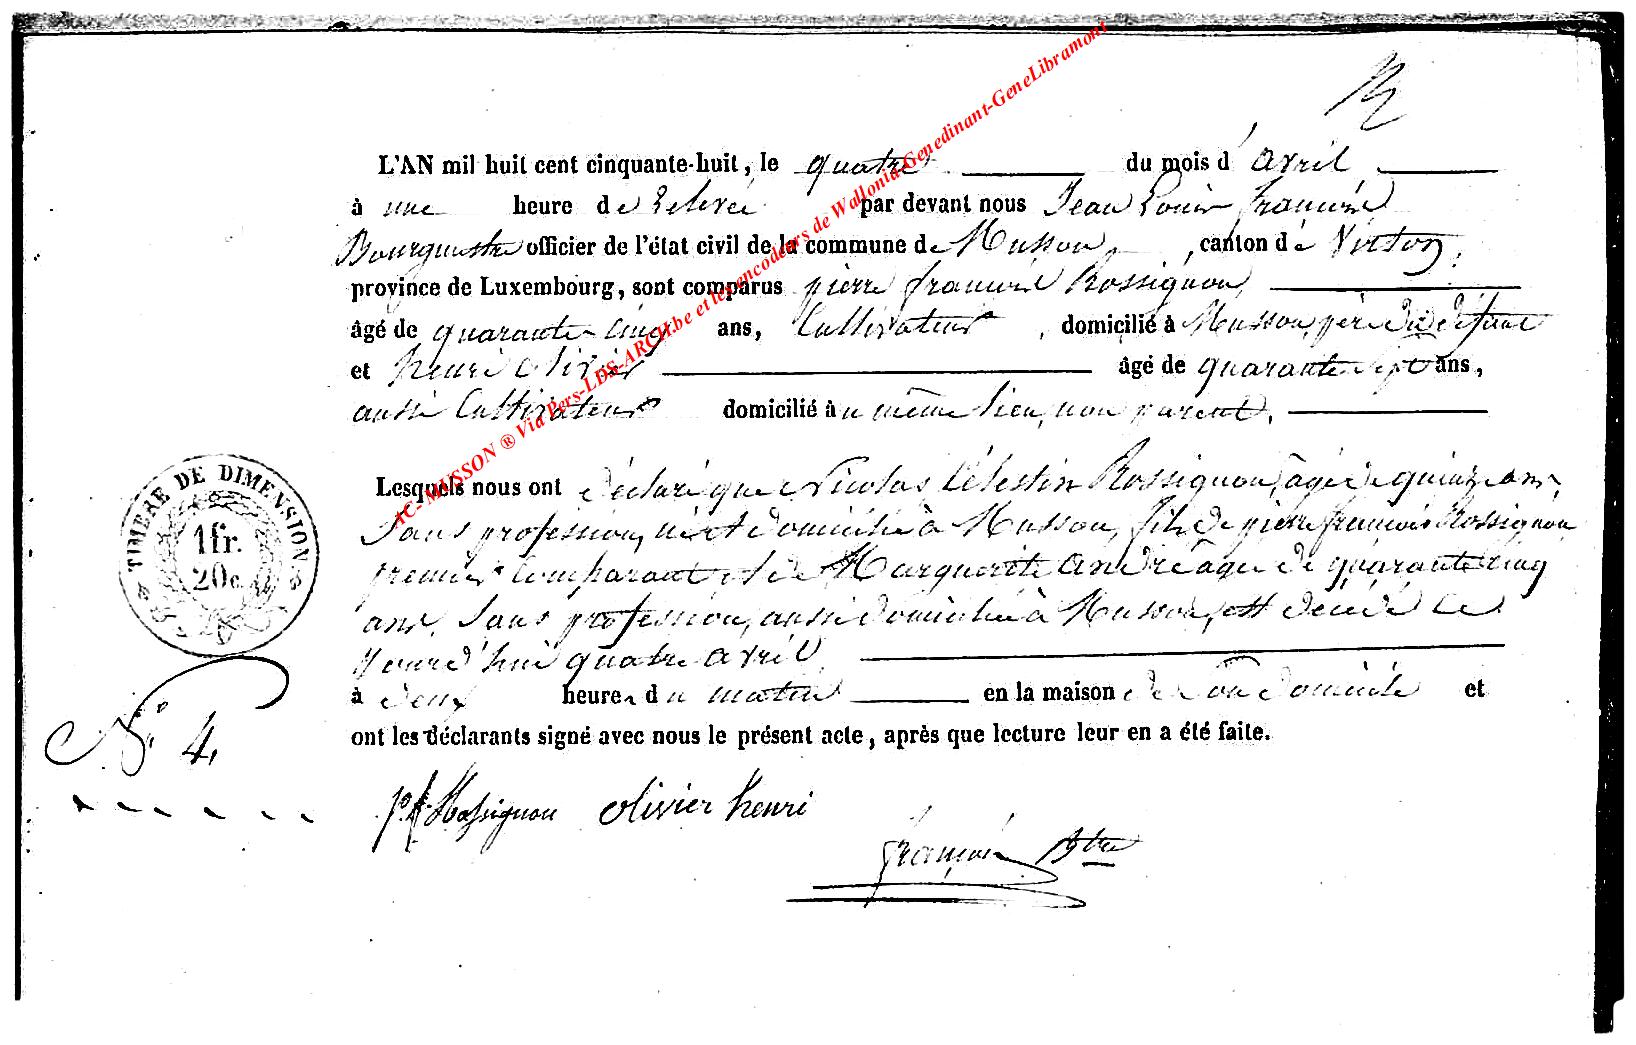 L'AN mil huit cent cinquante-huit, le quatre du mois d'avril
à une heure de relevée par devant nous Jean Louis François
Bourgmestre officier de l'état civil de la commune de Musson, canton de Virton,
province de Luxembourg, sont comparus pierre françois Rossignon,
âgé de quarante cinq ans, Cultivateur, domicilié à Musson, père du défunt
et henri olivier âgé de quarante sept ans,
aussi Cultivateur domicilié au même lieu, non parent,
Lesquels nous ont déclaré que Nicolas Célestin Rossignon, âgé de quinze ans,
Sans profession, né et domicilié à Musson, fils de pierre françois Rossignon
premier Comparant et de Marguerite André âgée de quarante cinq
ans, Sans profession, aussi domiciliée à Musson, est décédé Ce
jourd'hui quatre avril
à deux heures du matin en la maison de son domicile et
ont les déclarants signé avec nous le présent acte, après que lecture leur en a été faite.
TIMBRE DE DIMENSION
1fr.
20c.
N° 4
p f Rossignon olivier henri
françois Btre
AC-MUSSON ® Via Pers-LDS-ARCH.be et les encodeurs de Wallonia-Genedinant-GeneLibramont